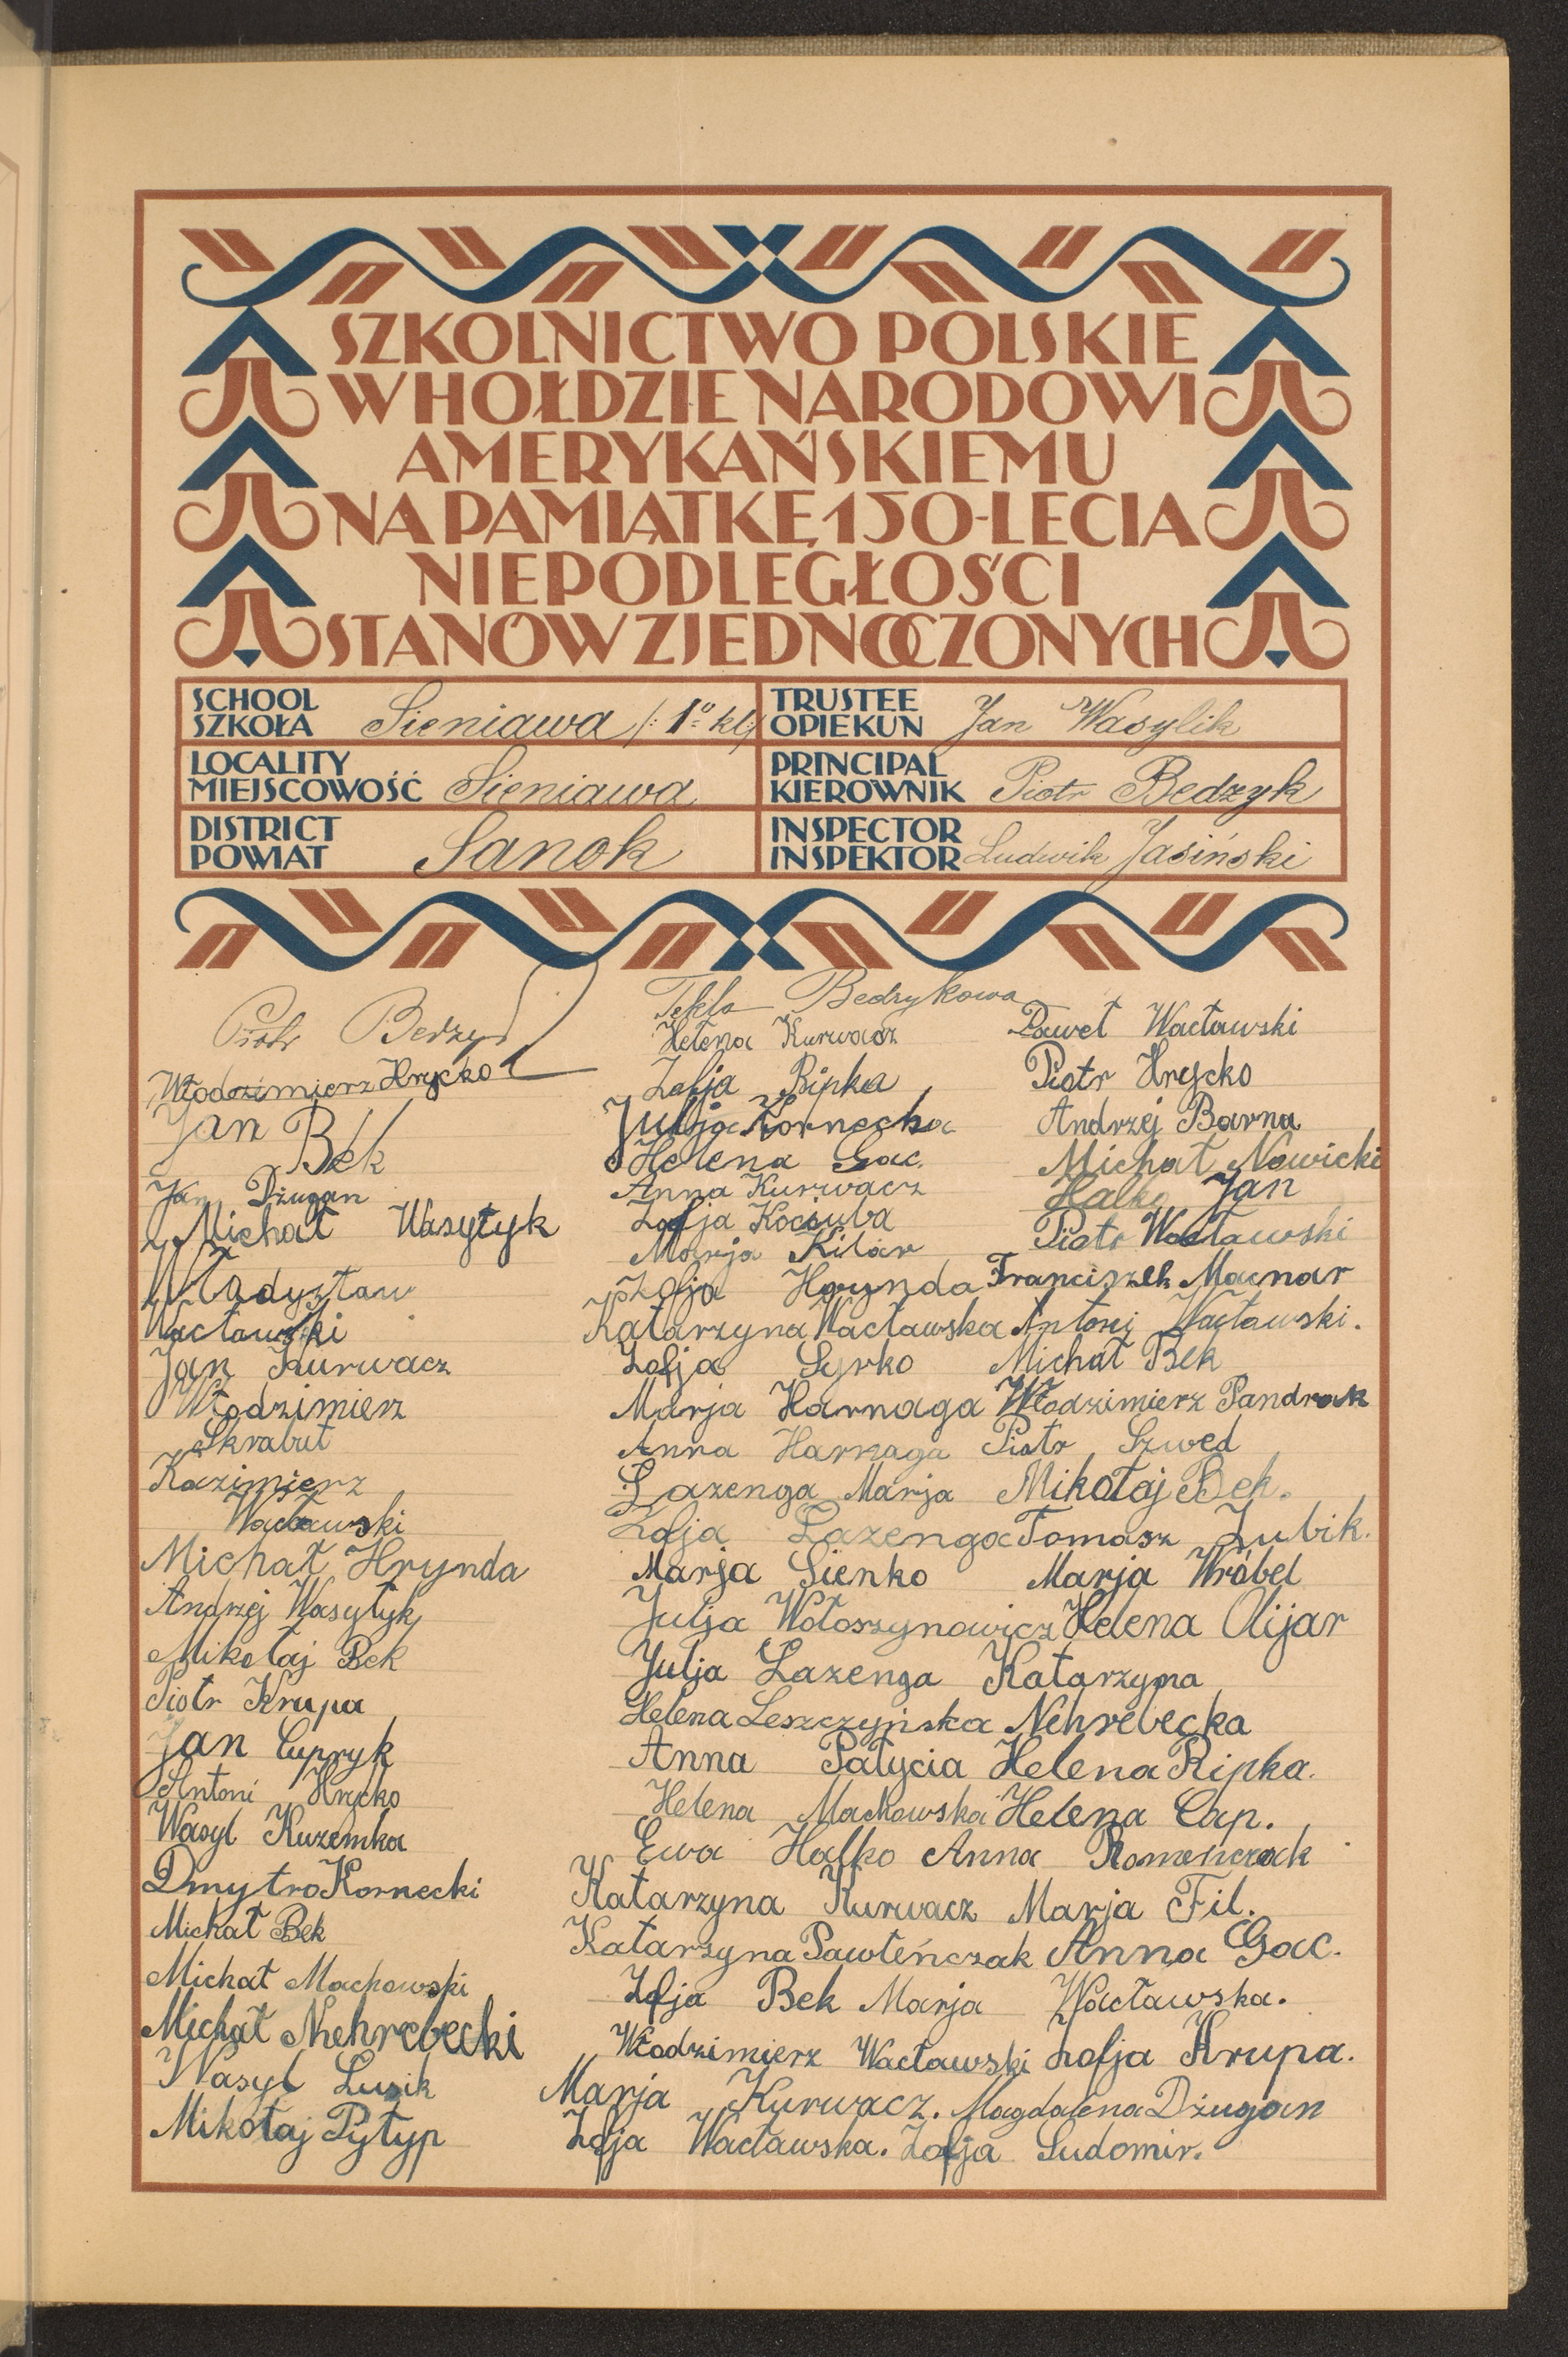 SZKOLNICTWO POLSKIE
W HOŁDZIE NARODOWI
AMERYKAŃSKIEMU
NA PAMIĄTKĘ 150-LECIA
NIEPODLEGŁOŚCI
STANÓW ZJEDNOCZONYCH
SCHOOL
SZKOŁA Sieniawa /: 1º kl:/
TRUSTEE
OPIEKUN Jan Wasylik
LOCALITY
MIEJSCOWOŚĆ Sieniawa
PRINCIPAL
KIEROWNIK Piotr Bedzyk
DISTRICT
POWIAT Sanok
INSPECTOR
INSPEKTOR Ludwik Jasiński
Piotr Bedzyk
Włodzimierz Hrycko
Jan Bek
Jan Dżugan
Michał Wasyłyk
Władysław
Wacławski
Jan Kurwacz
Włodzimierz
Skrabut
Kazimierz
Wacławski
Michał Hrynda
Andrzej Wasyłyk
Mikołaj Bek
Piotr Krupa
Jan Cupryk
Antoni Hrycko
Wasyl Kuzemka
Dmytro Kornecki
Michał Bek
Michał Machowski
Michał Nehrebecki
Wasyl Lusik
Mikołaj Pyłyp
Tekla Bedzykowa
Helena Kurwacz
Zofja Ripka
Julja Kornecka
Helena Gac.
Anna Kurwacz
Zofja Kociuba
Marja Kilar
Zofja Hrynda
Katarzyna Wacławska
Zofja Syrko
Marja Harnaga
Anna Harnaga
Łazenga Marja
Zofja Łazenga
Marja Sienko
Julja Wołoszynowicz
Julja Łazenga
Helena Leszczyńska
Anna Pałycia
Helena Machowska
Ewa Halko
Katarzyna Kurwacz
Katarzyna Pawleńczak
Zofja Bek
Włodzimierz Wacławski
Marja Kurwacz.
Zofja Wacławska.
Paweł Wacławski
Piotr Hrycko
Andrzej Barna
Michał Nowicki
Halko Jan
Piotr Wacławski
Franciszek Macnar
Antoni Wacławski.
Michał Bek
Włodzimierz Pandrak
Piotr Szwed
Mikołaj Bek.
Tomasz Zubik.
Marja Wróbel
Helena Olijar
Katarzyna
Nehrebecka
Helena Ripka.
Helena Cap.
Anna Romenczak
Marja Fil.
Anna Gac.
Marja Wacławska.
Zofja Krupa.
Magdalena Dżugan
Zofja Sudomir.